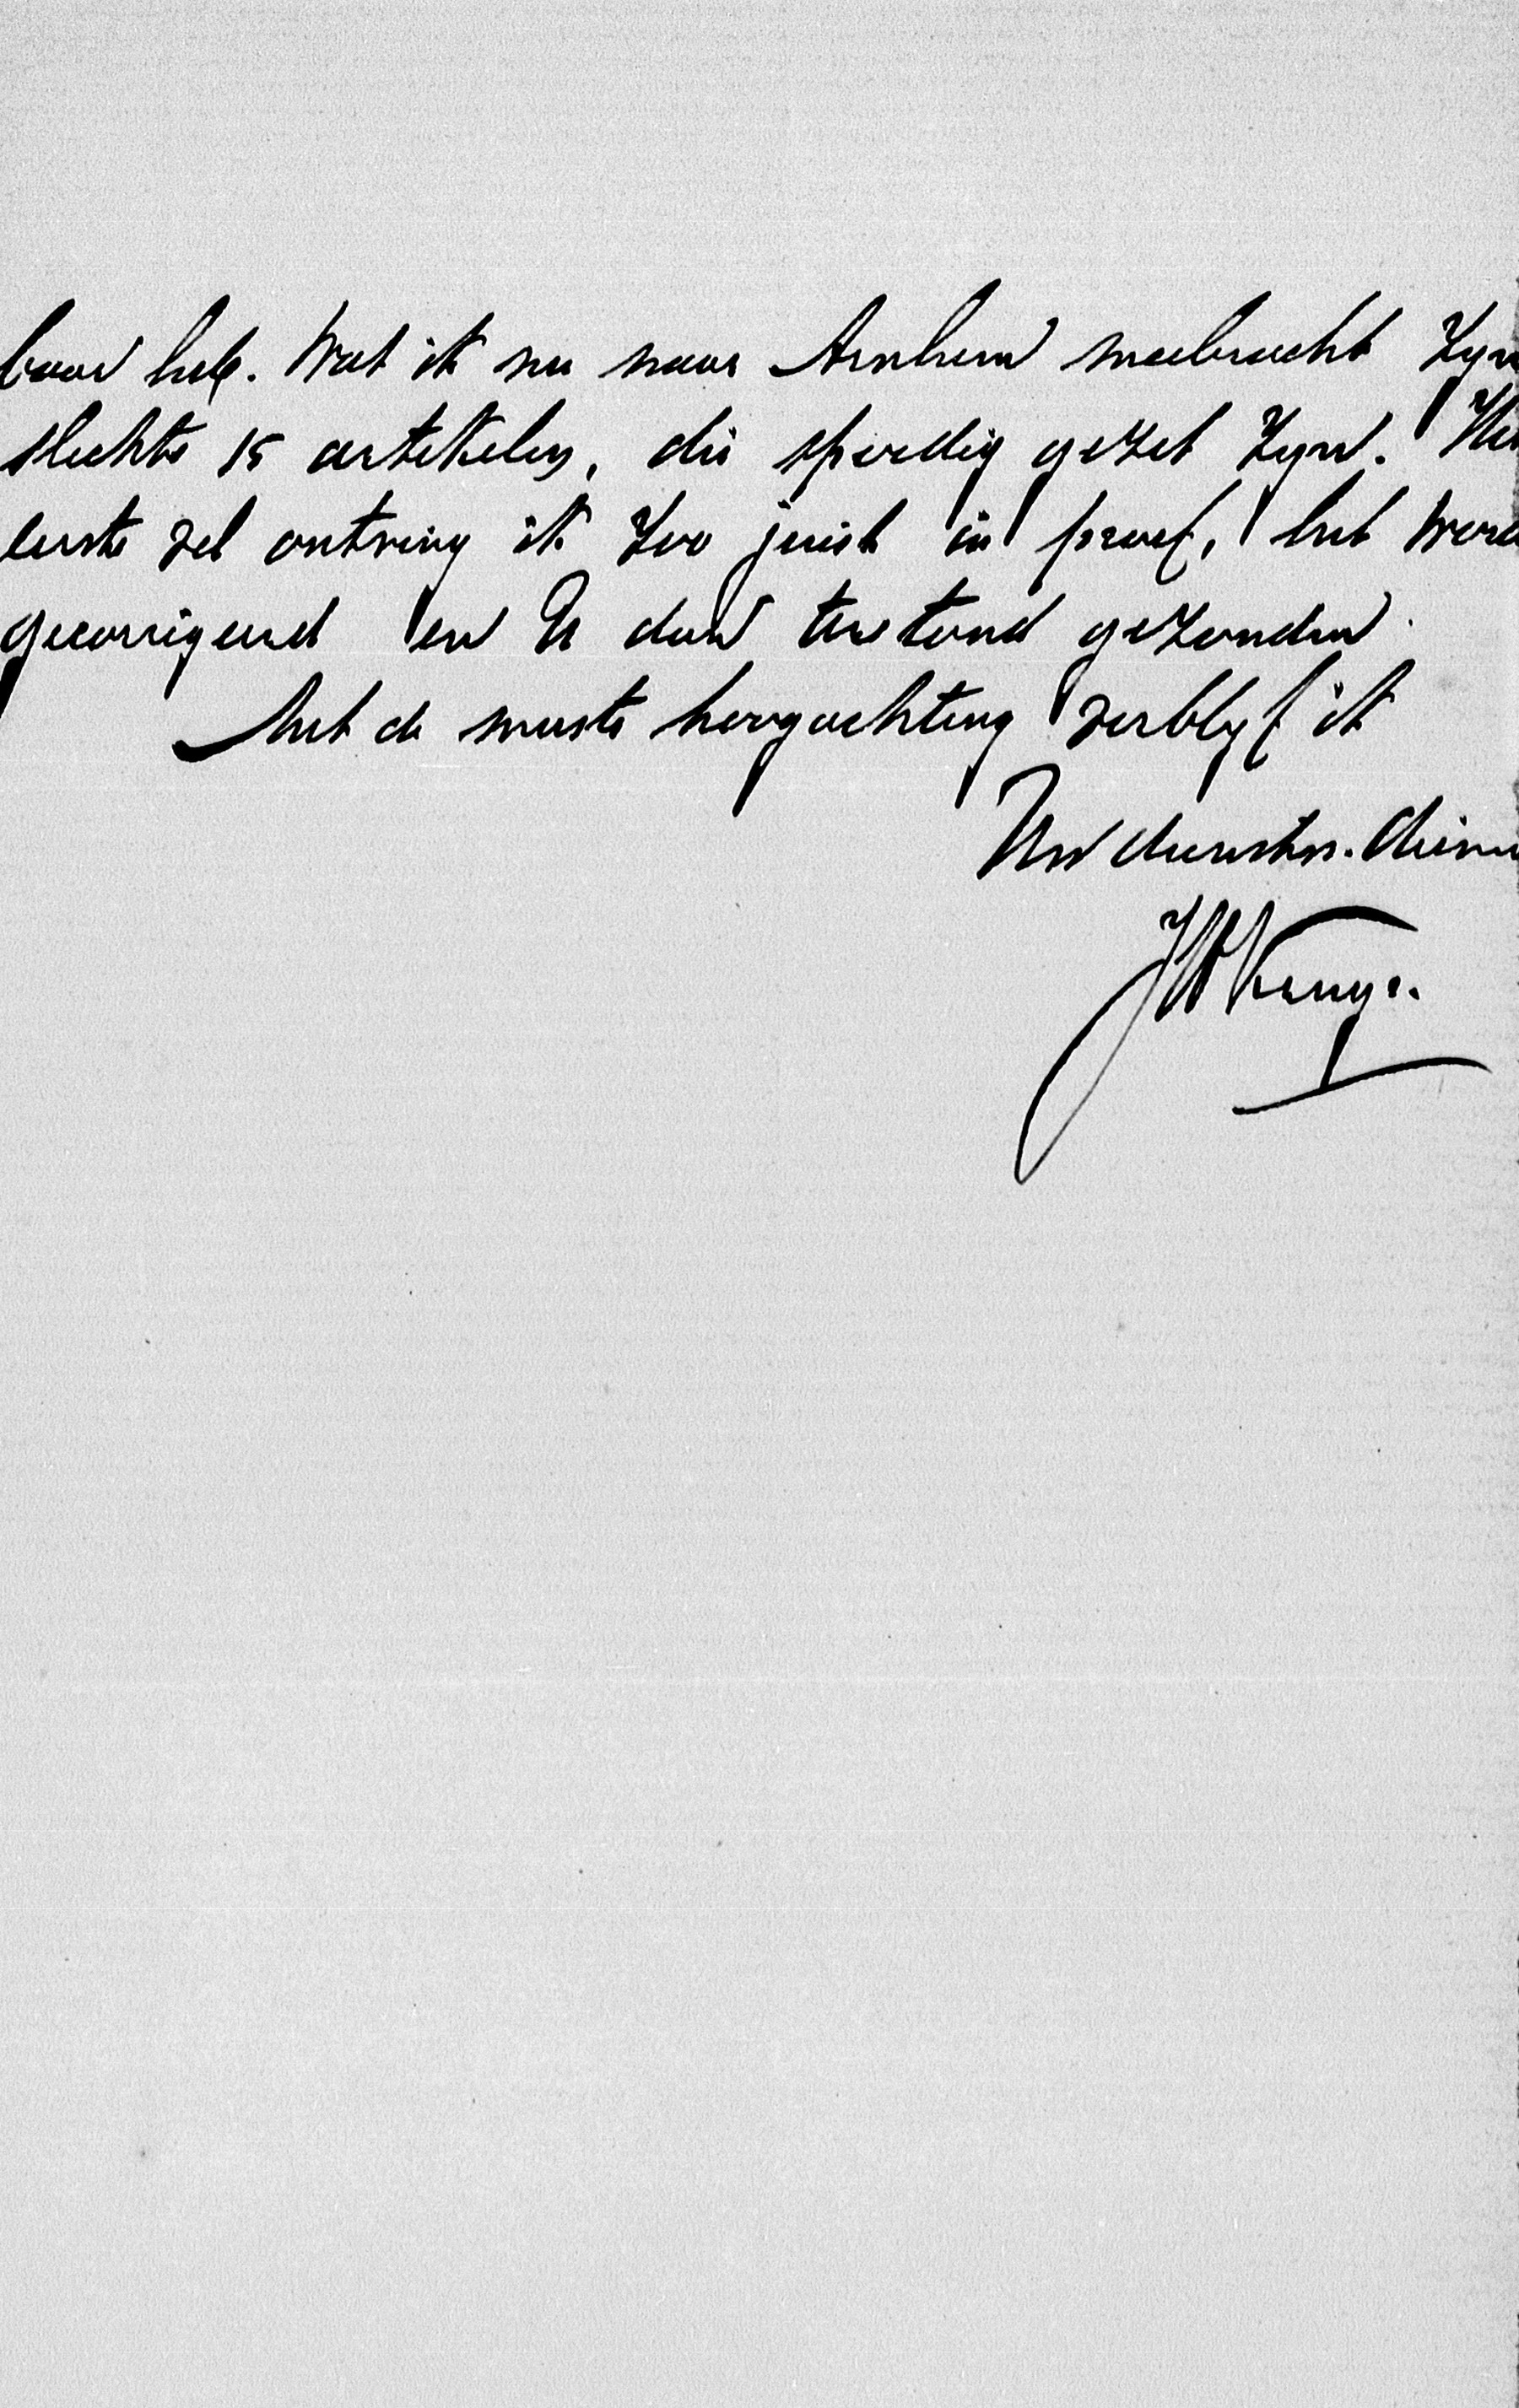 baar heb. Wat ik nu naar Arnhem meebracht zyn
slechts 15 artikelen, die spoedig gezet zyn. Het
eerste vel ontving ik zoo juist in proef, het word
gecorrigeerd en U dan terstond gezonden.
Met de meeste hoogachting verblyf ik
Uw dienstw. dienaar